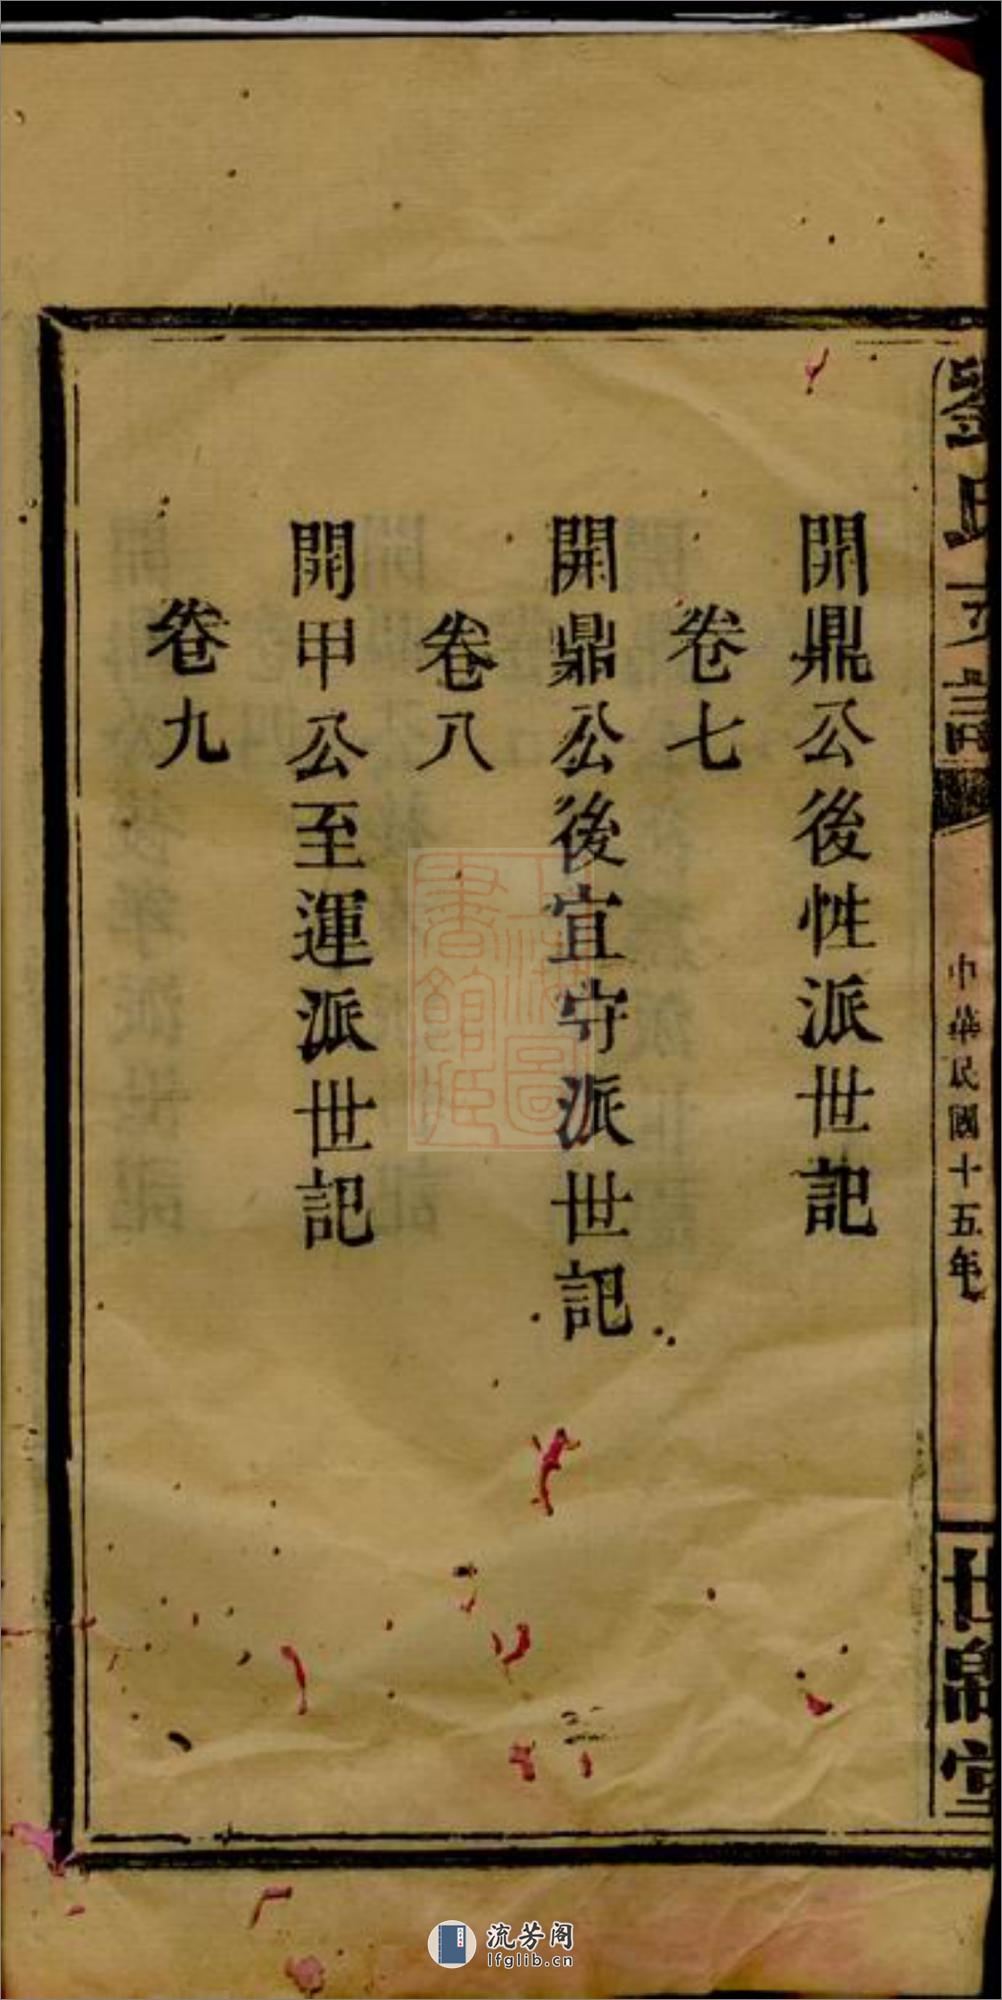 劉氏
中華民國十五年
世綿堂
開鼎公後性派世記
卷七
開鼎公後宜守派世記
卷八
開甲公至運派世記
卷九
上海圖書館藏
流芳阁
lfglib.cn